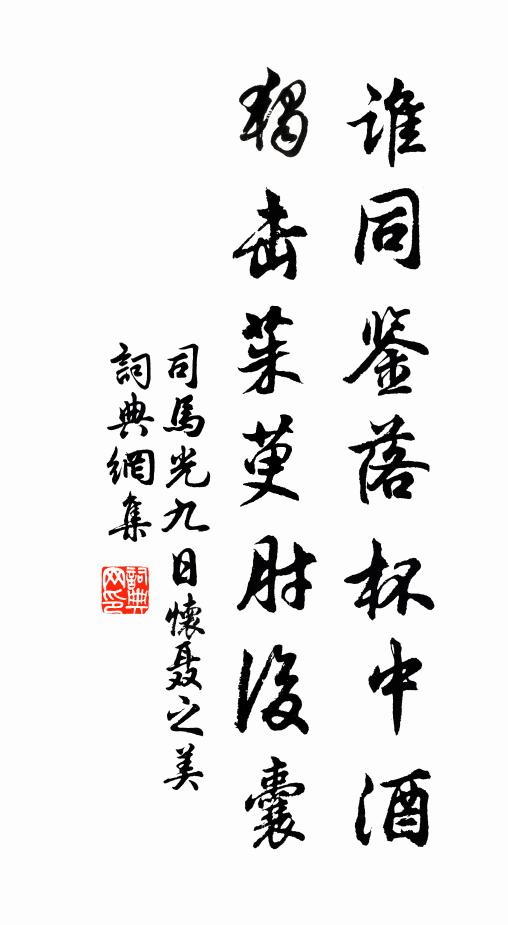 誰同鉴落杯中酒
獨击茱萸肘後囊
司馬光九日懷聶之美
詞典網集
詞典网印